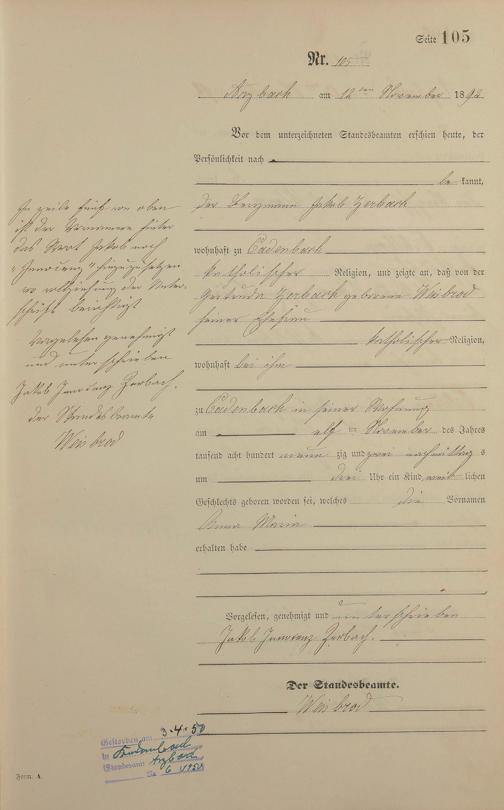 Seite 105
Nr. 105
Arzbach am 12ten November 1892
Vor dem unterzeichneten Standesbeamten erschien heute, der
Persönlichkeit nach
bekannt,
der Bergmann Jakob Zerbach
wohnhaft zu Cadenbach
katholischer Religion, und zeigte an, daß von der
Gertruda Zerbach geborene Weisbrod
seiner Ehefrau
katholischer Religion,
wohnhaft bei ihm
zu Cadenbach in seiner Wohnung
am elften November des Jahres
tausend acht hundert neunzig und zwei nachmittags
um drei Uhr ein Kind weiblichen
Geschlechts geboren worden sei, welches die Vornamen
Anna Maria
erhalten habe
Vorgelesen, genehmigt und unterschrieben
Jakob Innocenz Zerbach.
Der Standesbeamte.
Weisbrod
In Zeile fünf von oben
ist der Vorname hinter
das Wort Jakob noch
"Innocenz" hinzuzusetzen
vor Vollziehung der Unter-
schrift berichtigt
Vorgelesen genehmigt
und unterschrieben
Jakob Innocenz Zerbach.
der Standesbeamte
Weisbrod
Gestorben am 3.4.50
in Kadenbach
Standesamt Arzbach
No 6/1950
Form. A.